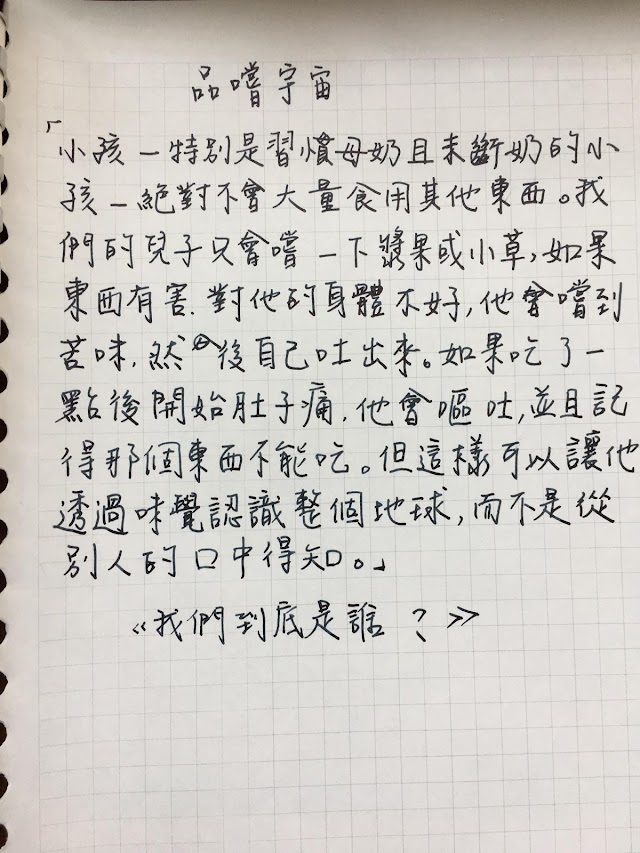 品嚐宇宙
「小孩－特別是習慣母奶且未斷奶的小
孩－絕對不會大量食用其他東西。我
們的兒子只會嚐一下漿果或小草，如果
東西有害，對他的身體不好，他會嚐到
苦味，然後自己吐出來。如果吃了一
點後開始肚子痛，他會嘔吐，並且記
得那個東西不能吃。但這樣可以讓他
透過味覺認識整個地球，而不是從
別人的口中得知。」
《我們到底是誰？》